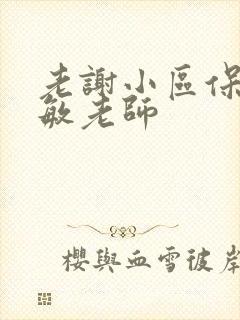 老謝小區保
敏老師
櫻與血雪彼岸